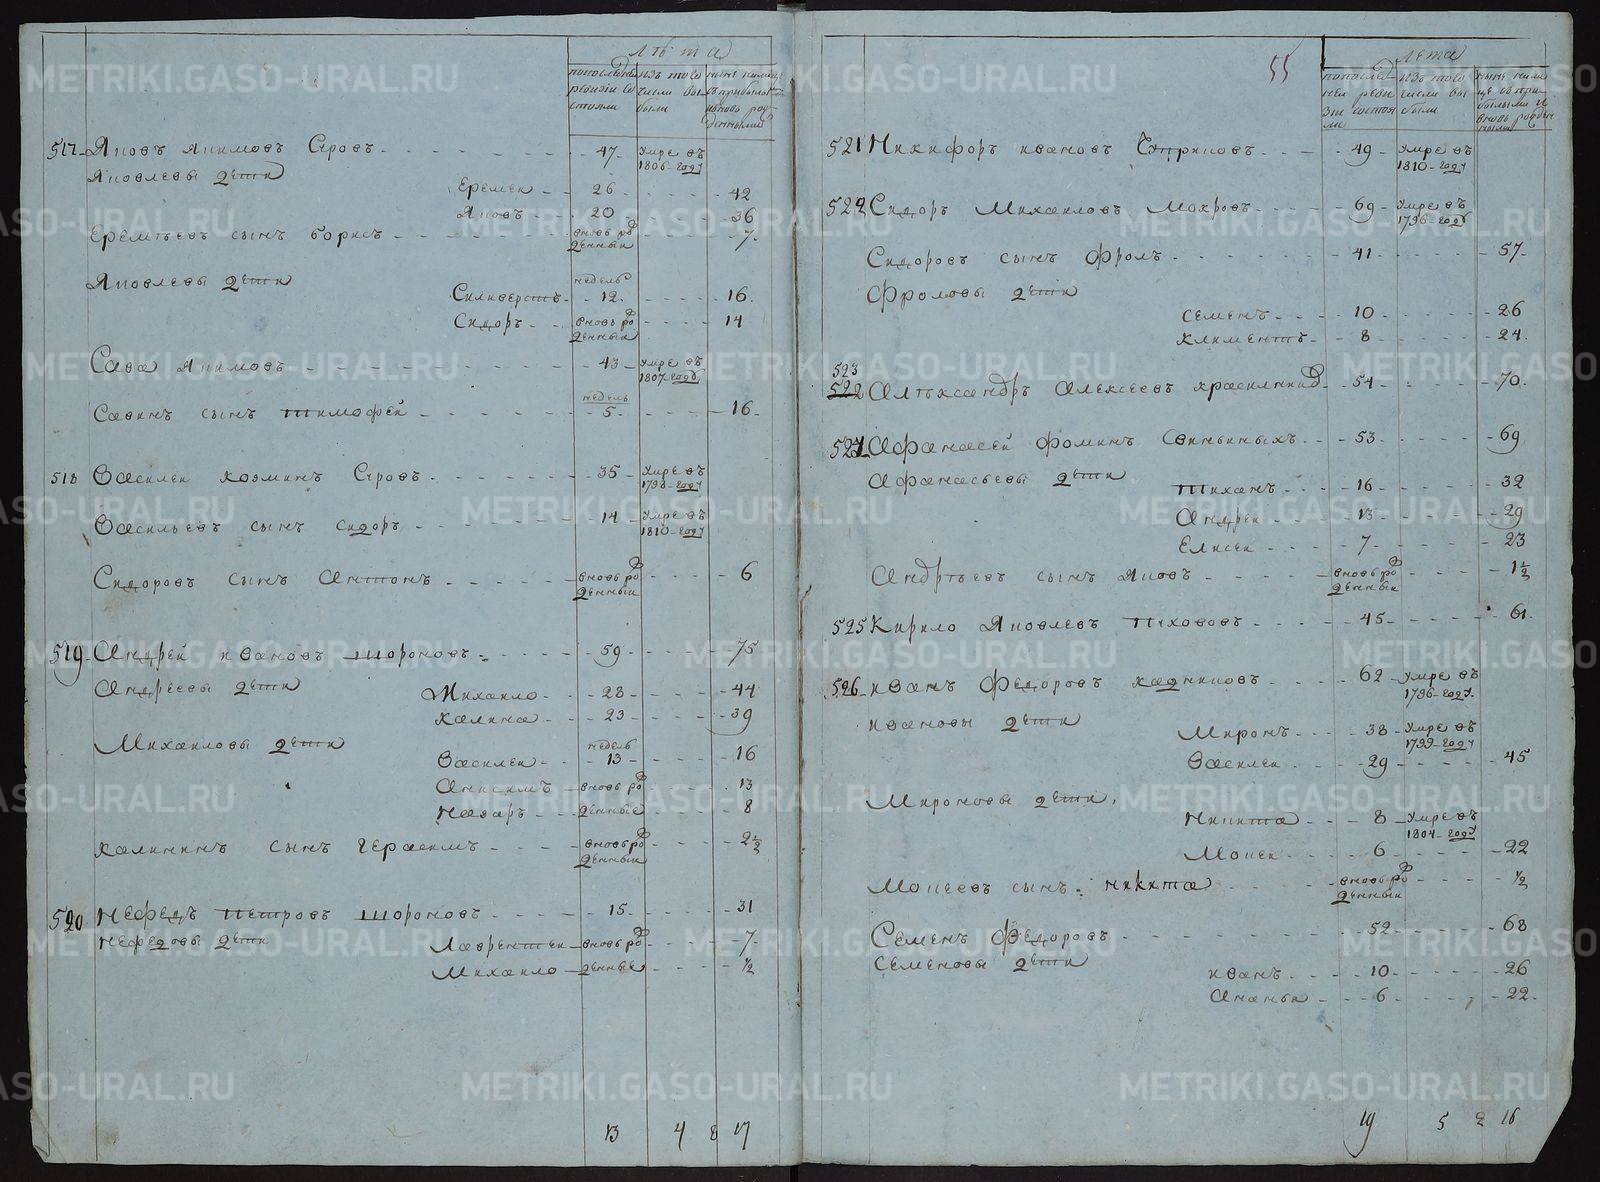 Лѣта
по последней ревизии состояли
изъ того числа выбыли
ныне налицо с прибылыми и вновь рожденными
517 Яковъ Якимовъ Серовъ 47 умре въ 1806 году
Яковлевы дети
Еремеи 26 42
Яковъ 20 36
Еремѣевъ сынъ Борисъ вновь рожденныи 7
Яковлевы дети
Силиверстъ недель 12 16
Сидоръ вновь рожденныи 14
Сава Якимовъ 43 умре въ 1807 году
Савинъ сынъ Тимофей недель 5 16
518 Василеи Козминъ Серовъ 35 умре въ 1798 году
Васильевъ сынъ Сидоръ 14 умре въ 1810 году
Сидоровъ сынъ Антонъ вновь рожденныи 6
519 Андрей Ивановъ Шороховъ 59 75
Андреевы дети
Михаило 28 44
Калина 23 39
Михаиловы дети
Василеи недель 13 16
Анисимъ вновь ро 13
Назаръ жденные 8
Калининъ сынъ Герасимъ вновь рожденныи 2 1/2
520 Нефедъ Петровъ Шороховъ 15 31
Нефедовы дети
Лаврентеи вновь ро 7
Михаило жденные 1/2
13 4 8 17
55
Лета
по последней ревизии состояли
изъ того числа выбыли
ныне налице съ прибылыми и вновь рожденными
521 Никифоръ Ивановъ 49 умре въ 1810 году
522 Сидоръ Михаиловъ Мокровъ 69 умре въ 1796 году
Сидоровъ сынъ Фролъ 41 57
Фроловы дети
Семенъ 10 26
Климентъ 8 24
523
522 Алѣксандръ Алексеевъ Красилников 54 70
524 Афанасей Фоминъ Свиньиныхъ 53 69
Афанасьевы дети
Тиханъ 16 32
Андреи 13 29
Елисеи 7 23
Андрѣевъ сынъ Яковъ вновь рожденныи 1 1/2
525 Кирило Яковлевъ 45 61
526 Иванъ Федоровъ Кадниковъ 62 умре въ 1796 году
Ивановы дети
Миронъ 38 умре въ 1799 году
Василеи 29 45
Мироновы дети
Никита 8 умре въ 1804 году
Моисеи 6 22
Моисеевъ сынъ Никита вновь рожденныи 1/2
Семенъ Федоровъ 52 68
Семеновы дети
Иванъ 10 26
Ананьи 6 22
19 5 2 16
METRIKI.GASO-URAL.RU